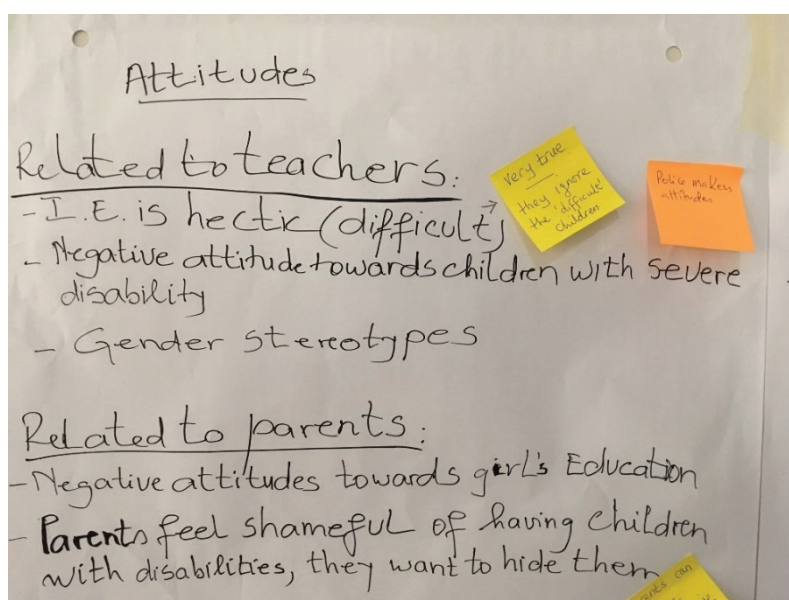 Attitudes
Related to teachers:
- I.E. is hectic (difficult)
- Negative attitude towards children with severe
disability
- Gender stereotypes
very true
they ignore
the 'difficult'
children
attitudes
Related to parents:
- Negative attitudes towards girl's Education
- Parents feel shameful of having children
with disabilities, they want to hide them
can